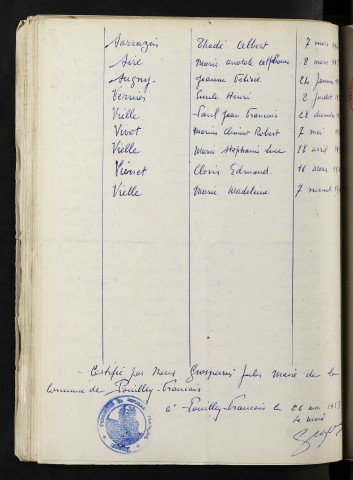 Sarrazin Thadé Albert 7 mars
Siré Marie Anatole Alphonse 8 mars
Sugny Jeanne Félicie 24 janvier
Vernier Emile Henri 2 juillet
Vielle Paul Jean Francois 28 décembre
Vivot Marius Clément Robert 7 mai
Vielle Marie Stéphanie Luce 18 avril
Viennet Clovis Edmond 16 mars
Vielle Marie Madeleine 7
Certifié par Nous Grosperrin Jules Maire de la
Commune de Pouilley-Francais
à Pouilley-Francais le 26 mai
le maire